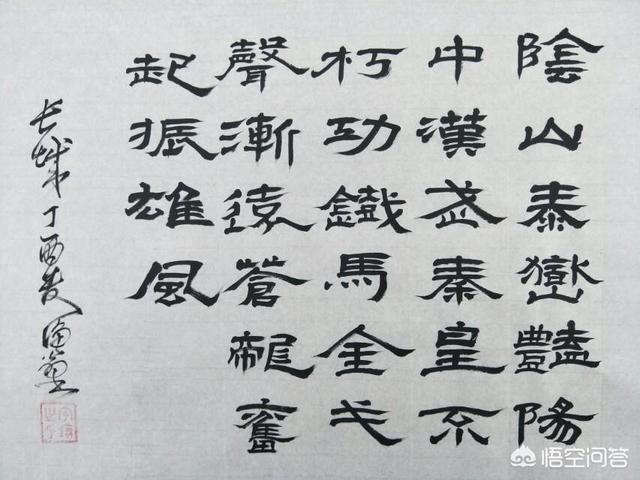 陰山泰嶽豔陽
中漢武秦皇不
朽功鐵馬金戈
聲漸遠蒼龍奮
起振雄風
长城丁酉
悟空问答